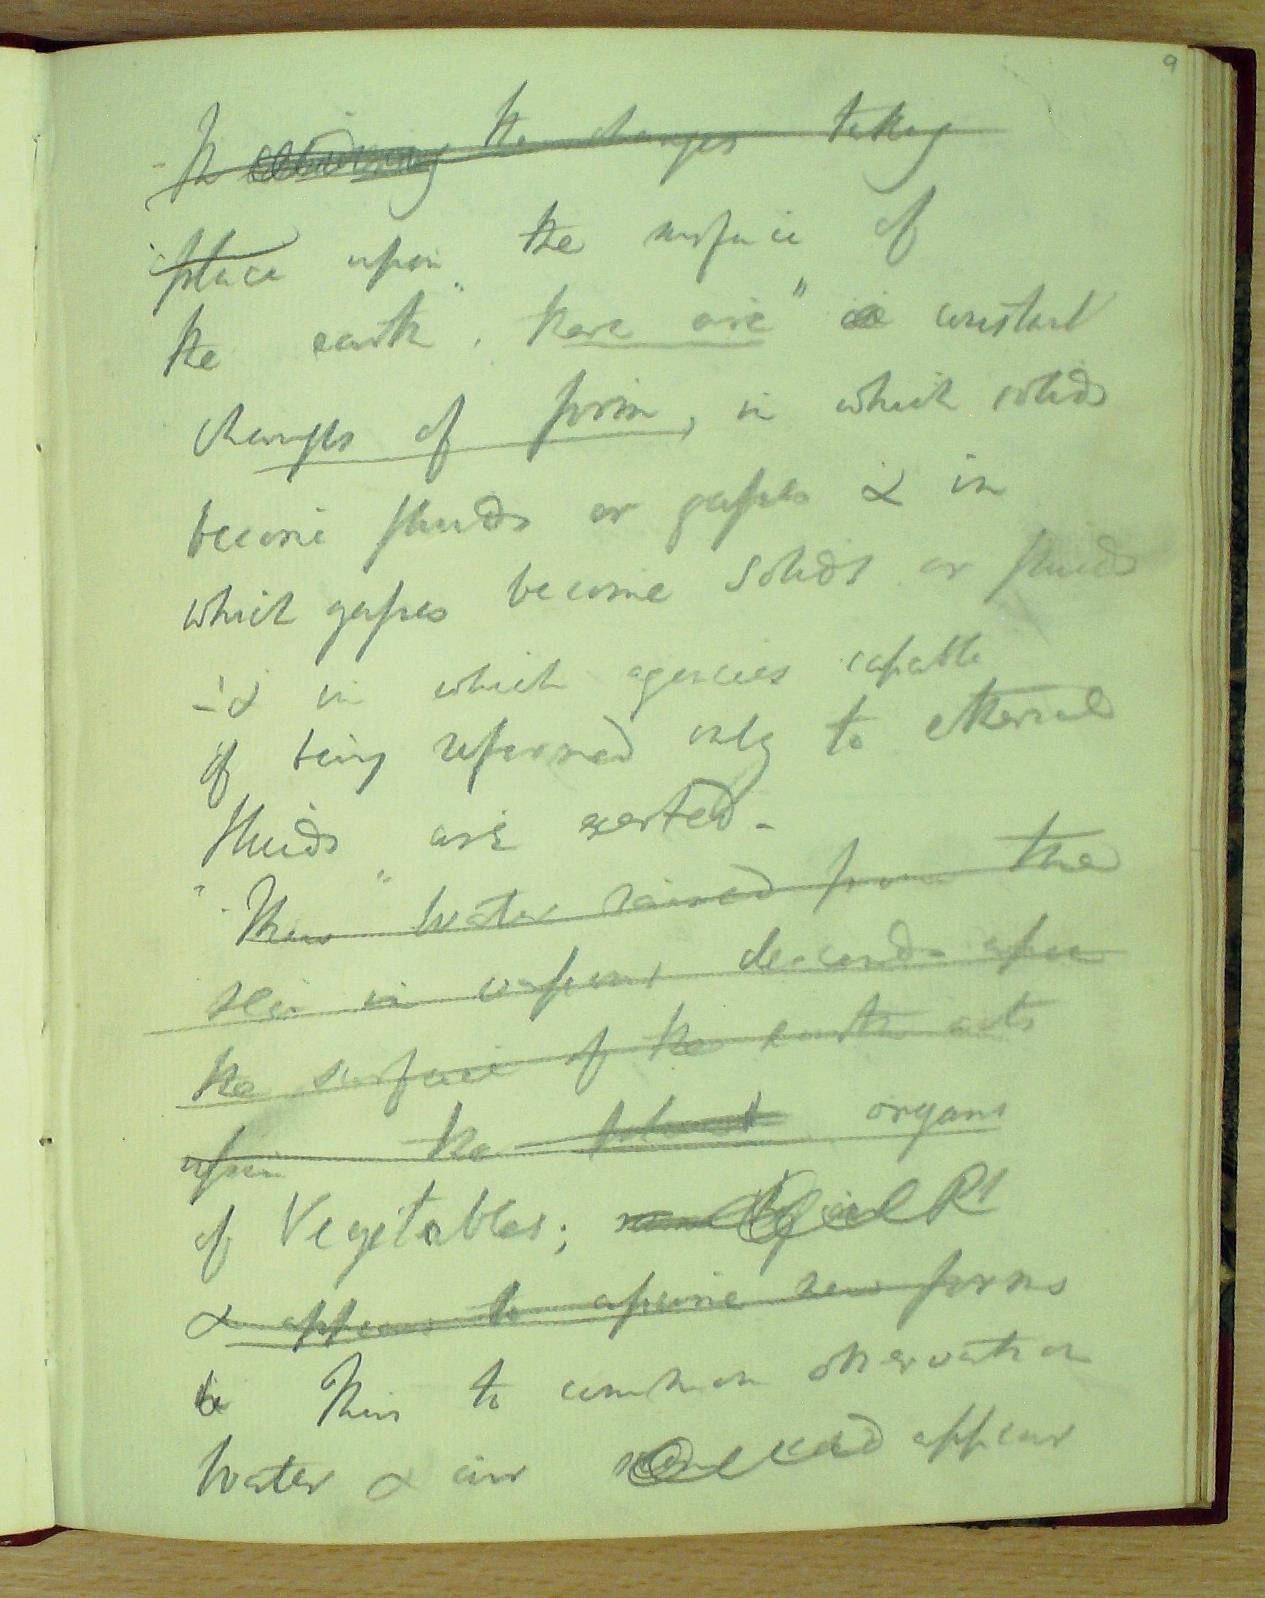 9
In the changes taking
place upon the surface of
the earth, there are constant
changes of form, in which solids
become fluids or gasses & in
which gasses become solids or fluids
- & in which agencies capable
of being referred only to etherial
fluids are exerted -
Thus Water raised from the
sea in vapour, descends upon
the surface of the earth acts
upon the plant organs
of Vegetables;
& appears to assume new forms
Thus to common observation
Water & air appear